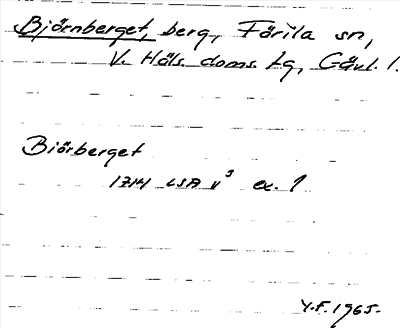 Björnberget, berg, Färila sn,
V. Häls. doms. lg, Gävl. l.
Biörberget
1714 LSA v³ ex. 1
Y.F. 1965.